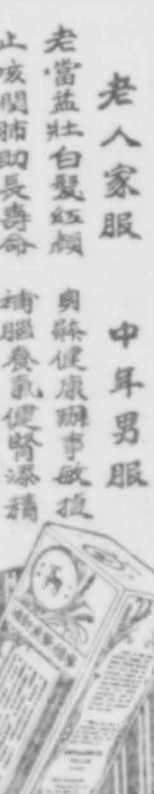 老人家服
中年男服
老當益壯白髮紅顏
身體健康辦事敏捷
止咳開肺助長壽命
補腦養氣健腎添精